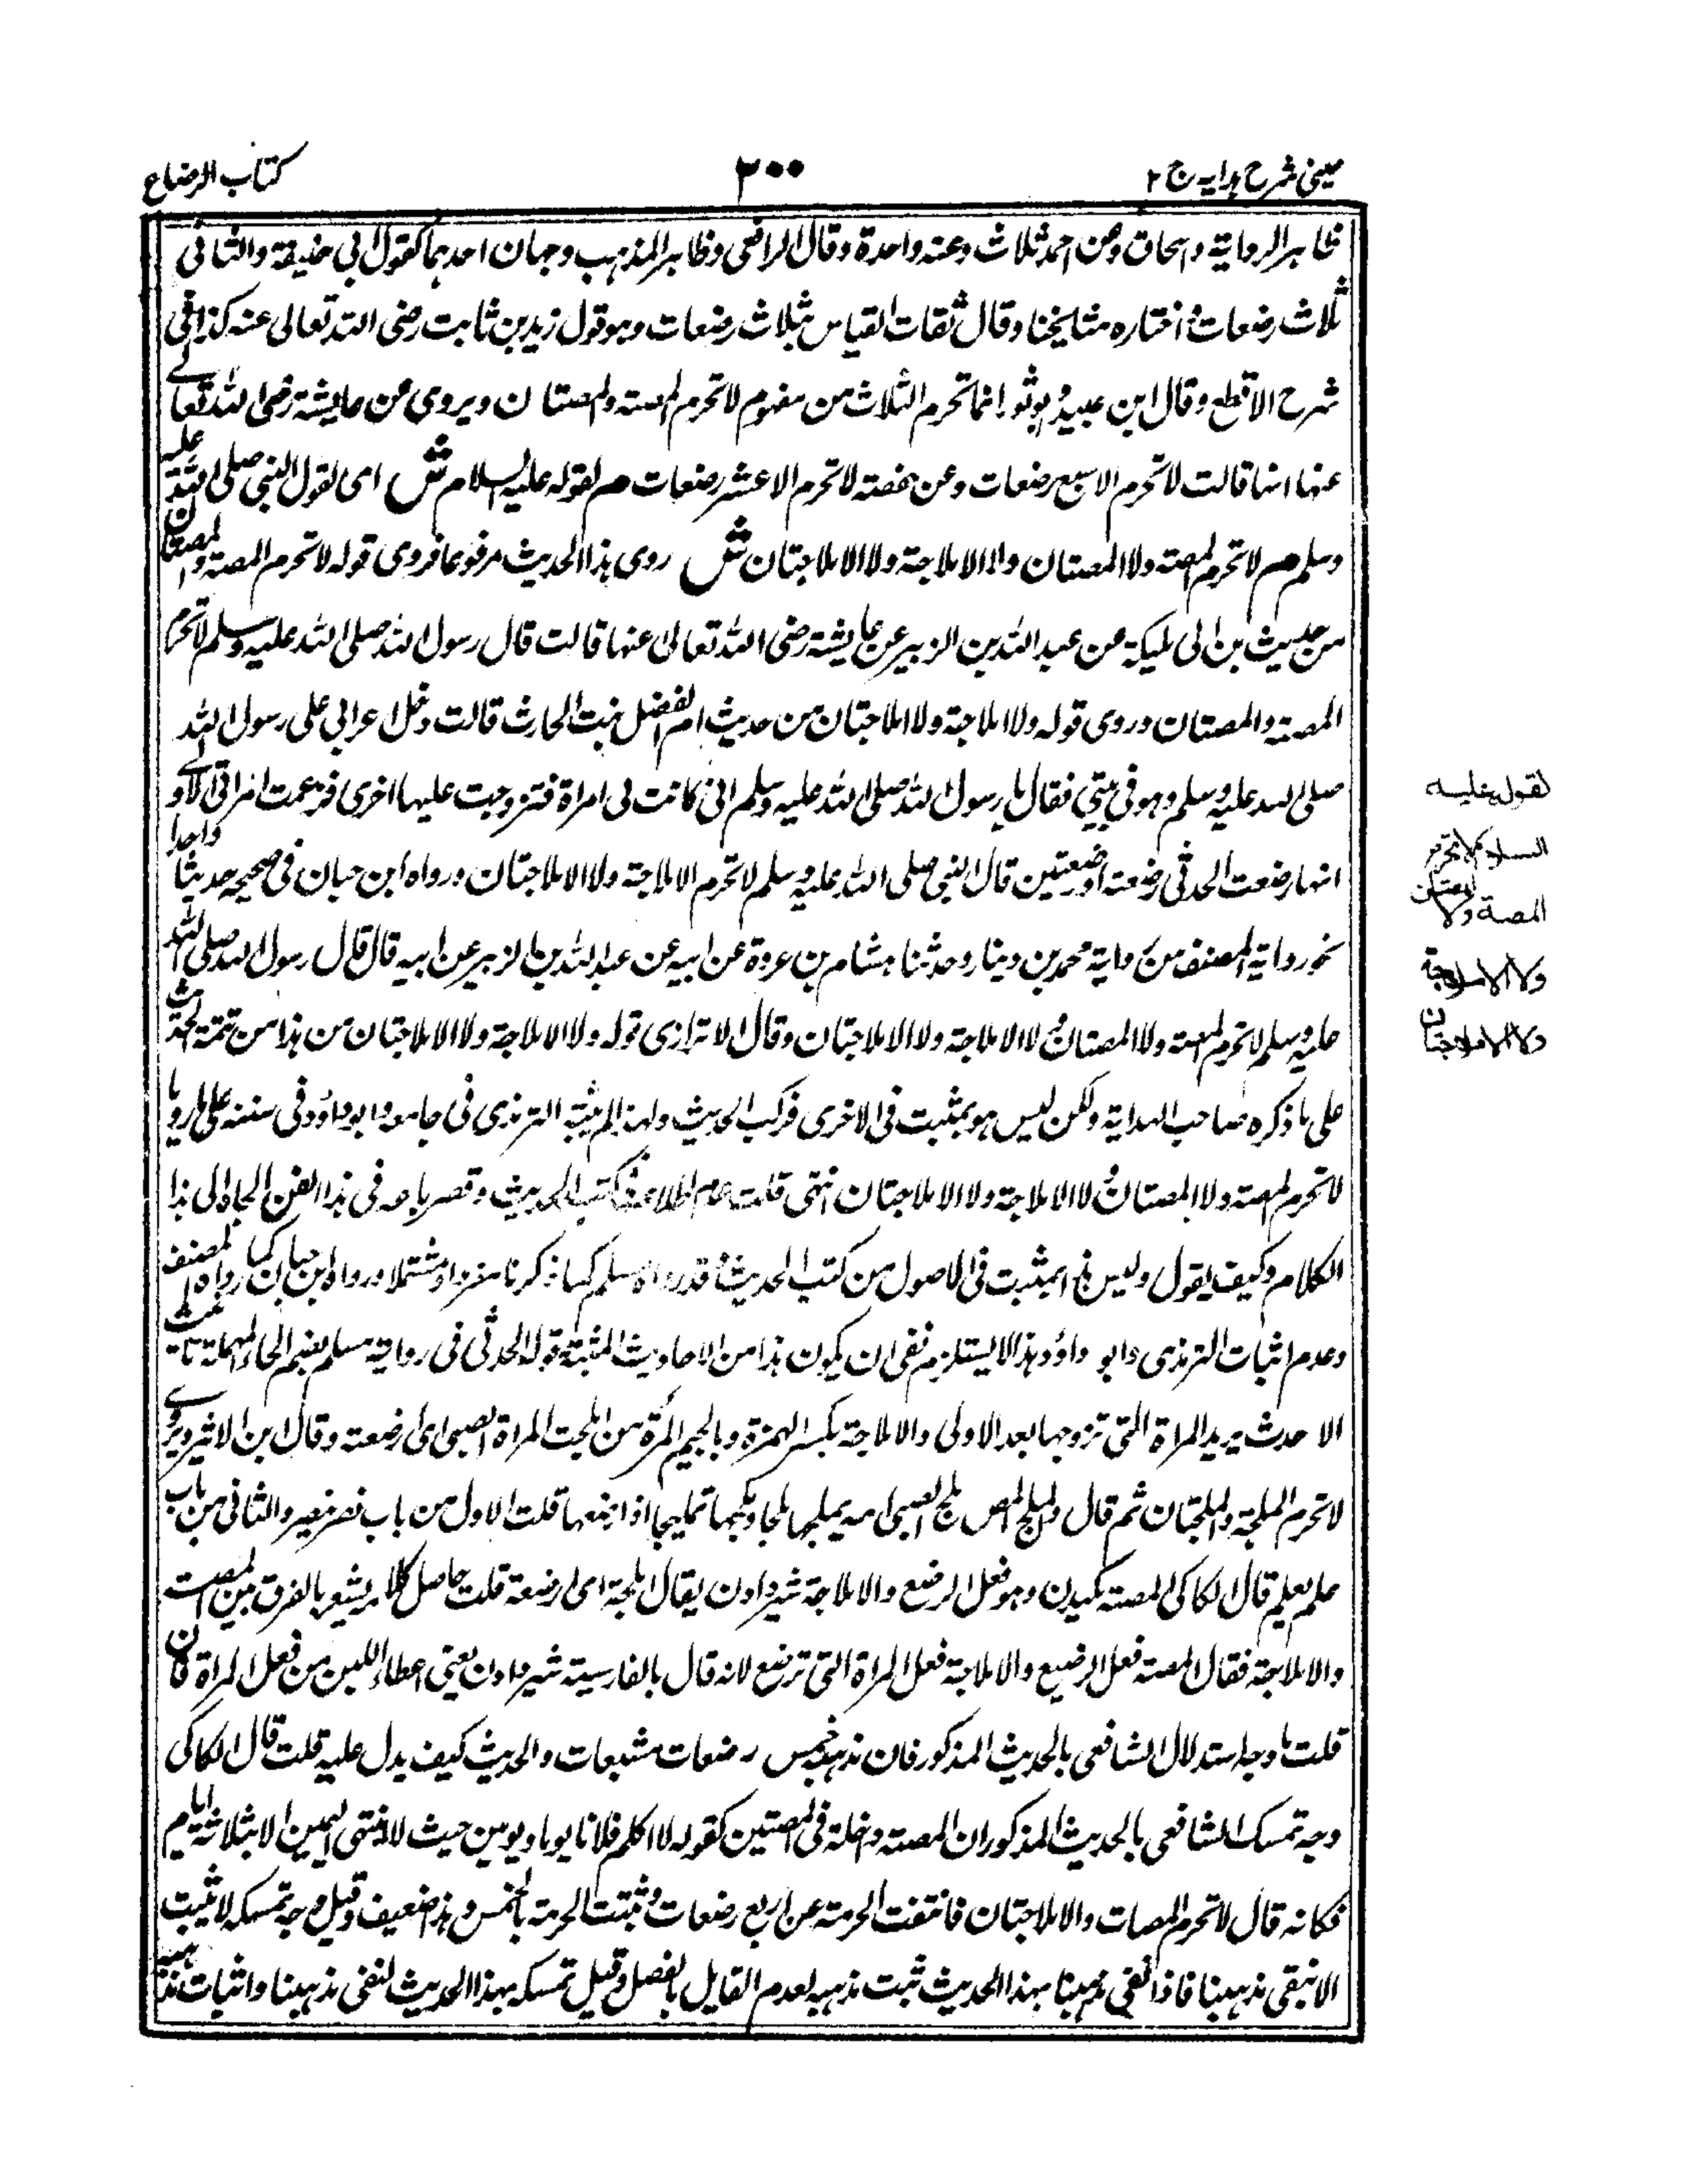 عينى شرح هدايه ج ٢
٢٠٠
كتاب الرضاع
ظاهر الرواية واسحاق وعن احمد ثلاث وعنه واحدة وقال الرافعى وظاهر المذهب وجهان احدهما كقول ابى حنيفة والثانى
ثلاث رضعات واختاره مشايخنا وقال ثقات القياس بثلاث رضعات وهو قول زيد بن ثابت رضى الله تعالى عنه كذا فى
شرح الاقطع وقال ابن عبيد وابو ثور انما تحرم الثلاث من مفهوم لا تحرم المصة والمصتان ويروى عن عايشة رضى الله تعالے
عنها انها قالت لا تحرم الا سبع رضعات وعن حفصة لا تحرم الا عشر رضعات م لقوله عليه السلام ش اى لقول النبى صلى الله عليه
وسلم م لا تحرم المصة ولا المصتان ولا الاملاجة ولا الاملاجتان ش روى هذا الحديث مرفوعا فروى قوله لا تحرم المصة والمصتان
من حديث ابن ابى مليكة عن عبد الله بن الزبير عن عايشة رضى الله تعالى عنها قالت قال رسول الله صلى الله عليه وسلم لا تحرم
المصة والمصتان وروى قوله ولا املاجة ولا املاجتان من حديث ام الفضل بنت الحارث قالت دخل اعرابى على رسول الله
صلى الله عليه وسلم وهو فى بيتى فقال يا رسول الله صلى الله عليه وسلم انى كانت لى امراة فتزوجت عليها اخرى فزعمت امراتى الاولے
انها رضعت الحدثى رضعة او رضعتين قال النبى صلى الله عليه وسلم لا تحرم الاملاجة ولا الاملاجتان ورواه ابن حبان فى صحيحه حديثا واحدا
نحو رواية المصنف من رواية محمد بن دينار وحدثنا هشام بن عروة عن ابيه عن عبد الله بن الزبير عن ابيه قال قال رسول الله صلى الله
عليه وسلم لا تحرم المصة ولا المصتان ولا الاملاجة ولا الاملاجتان وقال الاترازى قوله ولا الاملاجة ولا الاملاجتان من هذا من تتمة الحديث
على ما ذكره صاحب الهداية ولكن ليس هو بمثبت فى الاخرى فركب الحديث ولهذا لم يثبته الترمذى فى جامعه وابو داؤد فى سننه على ما رويا
لا تحرم المصة ولا المصتان ولا الاملاجة ولا الاملاجتان انتهى قلت عدم اطلاعه كتب الحديث وقصر باعه فى هذا الفن الجاه الى هذا
الكلام وكيف يقول وليس هذا بمثبت فى الاصول من كتب الحديث وقد رواه مسلم كما ذكرنا مفردا ومشتملا ورواه ابن حبان كما رواه المصنف
وعدم اثبات الترمذى وابو داؤد هذا لا يستلزم نفى ان يكون هذا من الاحاديث المثبتة قوله الحدثى فى رواية مسلم بضم الحاء المهملة تانيث
الاحدث يريد المراة التى تزوجها بعد الاولى والاملاجة بكسر الهمزة وبالجيم المرة من املجت المراة الصبى اى ارضعته وقال ابن الاثير ويروے
لا تحرم الملجة والملجتان ثم قال والملج المص ملج الصبى امه يملجها ملجا ويملجها تمليجا اذا رضعها قلت الاول من باب نصر ينصر والثانى من باب
علم يعلم قال الكاكى المصة مكيدن وهو فعل الرضيع والاملاجة شير دادن يقال املجة اى ارضعة قلت حاصل كلامه يشعر بالفرق بين المصة
والاملاجة فقال المصة فعل الرضيع والاملاجة فعل المراة التى ترضع لانه قال بالفارسية شير دادن يعنى اعطاء اللبن من فعل المراة فان
قلت ما وجه استدلال الشافعى بالحديث المذكور فان مذهبه خمس رضعات مشبعات والحديث كيف يدل عليه قلت قال الكاكى
وجه تمسك الشافعى بالحديث المذكور ان المصة داخلة فى المصتين كقوله لا اكلم فلانا يوما ويومين حيث لا ينتهى اليمين الا بثلاثة ايام
فكانه قال لا تحرم المصات والاملاجتان فانتفت الحرمة عن اربع رضعات وثبتت الحرمة بالخمس وهذا ضعيف وقيل وجه تمسكه لا يثبت
الا بنفى مذهبنا فاذا نفى مذهبنا بهذا الحديث ثبت مذهبه لعدم القايل بالفصل وقيل تمسكه بهذا الحديث لنفى مذهبنا واثبات مذهبه
لقوله عليه
السلام لا تحرم
المصة ولا المصتان
ولا الاملاجة
ولا الاملاجتان